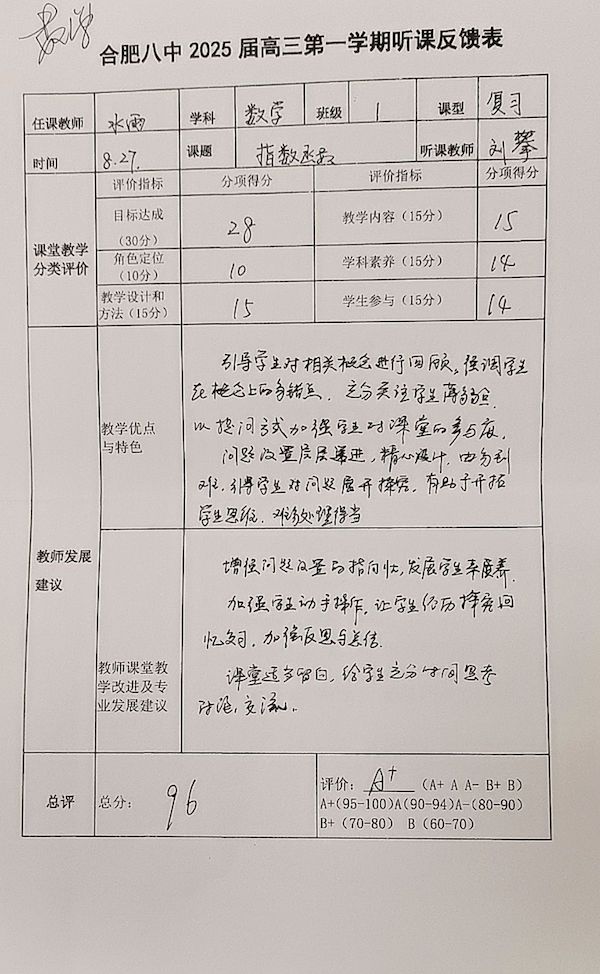 数学
合肥八中 2025 届高三第一学期听课反馈表
任课教师 水雨 学科 数学 班级 1 课型 复习
时间 8.27. 课题 指数函数 听课教师 刘攀
评价指标 分项得分 评价指标 分项得分
课堂教学分类评价
目标达成（30分） 28 教学内容（15分） 15
角色定位（10分） 10 学科素养（15分） 14
教学设计和方法（15分） 15 学生参与（15分） 14
教师发展建议
教学优点与特色
引导学生对相关概念进行回顾，强调学生
在概念上的易错点，充分关注学生薄弱点.
以提问方式加强学生对课堂的参与度.
问题设置层层递进，精心设计，由易到
难，引导学生对问题展开探究，有助于开拓
学生思维.
教师课堂教学改进及专业发展建议
增强问题设置的指向性，发展学生素养.
加强学生动手操作，让学生经历探究回
忆，加强反思与总结.
课堂适当留白，给学生充分时间思考
讨论，交流.
总评 总分： 96
评价： A+ （A+ A A- B+ B）
A+(95-100)A(90-94)A-(80-90)
B+ (70-80) B (60-70)